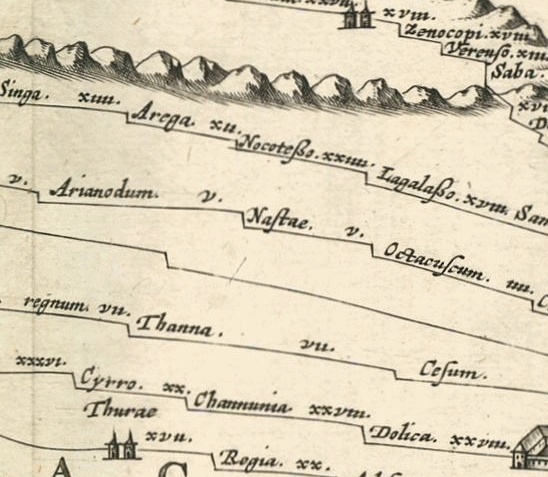 xviii.
Zenocopi. xviii
Verenso. xiii
Saba.
xvi
D
Singa. xiiii.
Arega. xii.
Nocotesso. xxiiii.
Lagalasso. xviii. San
v.
Arianodum. v.
Nastae. v.
Octacuscum. iiii. C
regnum. vii.
Thanna. vii.
Cesum.
xxxvi.
Cyrro. xx.
Channunia xxviii.
Dolica. xxviii.
Thurae
xvii.
Rogia. xx.
A C